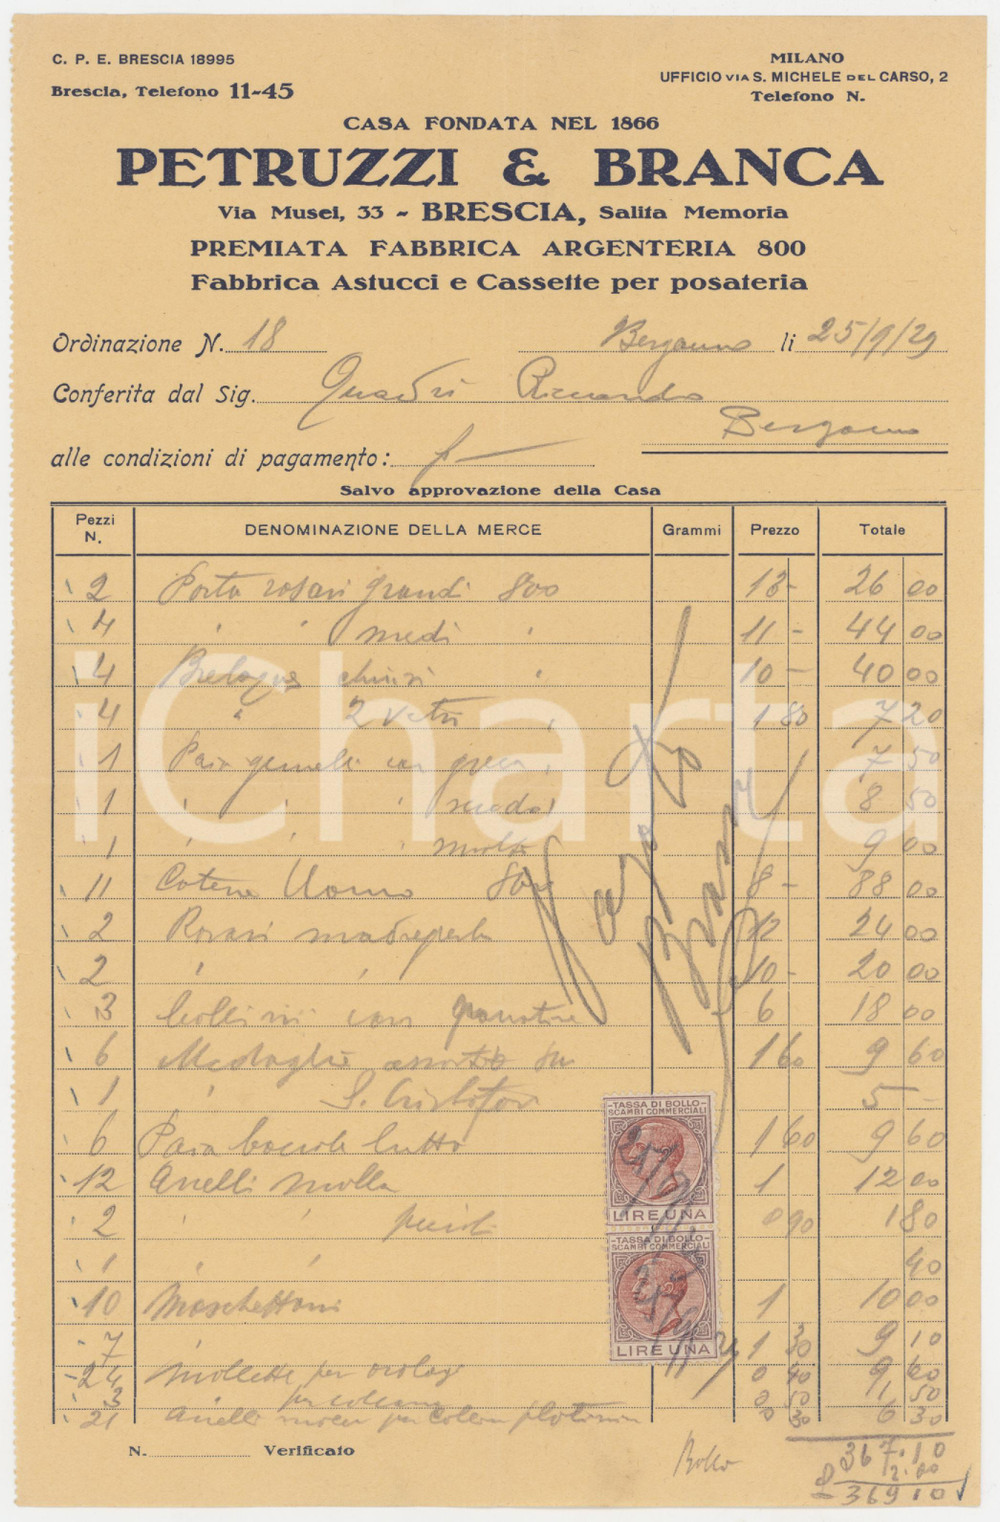 C. P. E. BRESCIA 18995
Brescia, Telefono 11-45
MILANO
UFFICIO VIA S. MICHELE DEL CARSO, 2
Telefono N.
CASA FONDATA NEL 1866
PETRUZZI & BRANCA
Via Musei, 33 - BRESCIA, Salita Memoria
PREMIATA FABBRICA ARGENTERIA 800
Fabbrica Astucci e Cassette per posateria
Ordinazione N. 18 Bergamo li 25/9/29
Conferita dal Sig. Quadri Riccardo
Bergamo
alle condizioni di pagamento:
Salvo approvazione della Casa
Pezzi N. DENOMINAZIONE DELLA MERCE Grammi Prezzo Totale
2 Porta rosari grandi 800 13 - 26 00
4 " " medi " 11 - 44 00
4 chiusi " 10 - 40 00
4 " 2 vetri " 1 80 7 20
1 Paia gemelli con " 7 50
1 " " " 8 50
1 " " " 9 00
11 Catene Uomo 800 8 - 88 00
2 Rosari madreperla 12 24 00
2 " " 10 - 20 00
3 Collini con granatine 6 18 00
6 Medaglie assortite 1 60 9 60
1 " S. Cristoforo 5 -
6 Paia boccole lutto 1 60 9 60
12 Anelli molla 1 12 00
2 " " piccoli 0 90 1 80
1 " " 40
10 Moschettoni 1 10 00
7 " 1 30 9 10
24 Mollette per orologi 0 40 9 60
3 per collana 0 50 1 50
21 Anelli molla per collana 0 30 6 30
Branca
TASSA DI BOLLO
SCAMBI COMMERCIALI
LIRE UNA
TASSA DI BOLLO
SCAMBI COMMERCIALI
LIRE UNA
N. Verificato
Bollo
367.10
2.00
369 10
iCharta